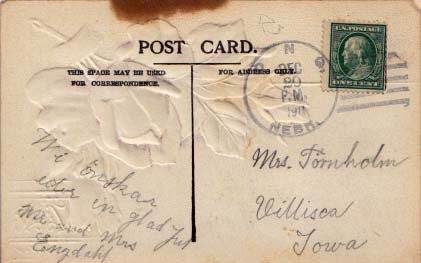 POST CARD.
THIS SPACE MAY BE USED
FOR CORRESPONDENCE.
FOR ADDRESS ONLY.
U.S. POSTAGE
ONE CENT
DEC
20
P.M.
191
NEBR.
Wi önskar
eder in glad Jul
Mr and Mrs
Engdahl
Mrs. Törnholm
Villisca
Iowa